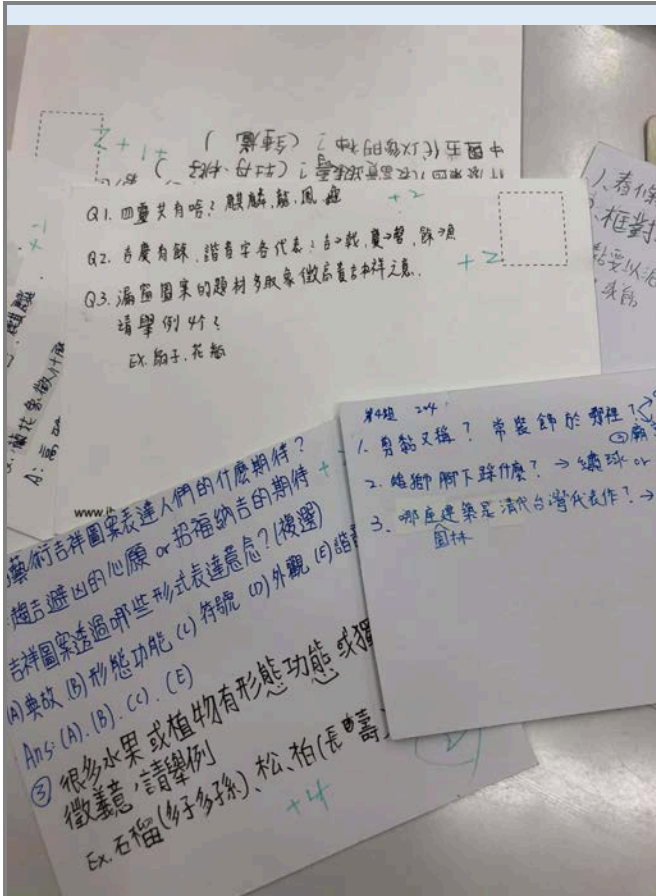 Q1. 四靈共有啥? 麒麟.龍.鳳.龜
+2
Q2. 吉慶有餘,諧音字各代表? 吉→戟,慶→磬,餘→魚
+2
Q3. 漏窗圖案的題材多取象徵富貴吉祥之意.
請舉例4个?
EX.扇子.花瓶
+1+2
蘭花象徵什麼
A:高
www.
第4組 204
1. 剪黏又稱? 常裝飾於哪裡?
2. 雄獅腳下踩什麼? → 繡球 or
3. 哪座建築是清代台灣代表作? →
園林
藝術吉祥圖案表達人們的什麼期待?
趨吉避凶的心願 or 招福納吉的期待
吉祥圖案透過哪些形式表達意念?(複選)
(A)典故 (B)形態功能 (C)符號 (D)外觀 (E)諧音
Ans:(A).(B).(C).(E)
③ 很多水果或植物有形態功能或獨
徵義意,請舉例
Ex.石榴(多子多孫)、松、柏(長壽)
+4